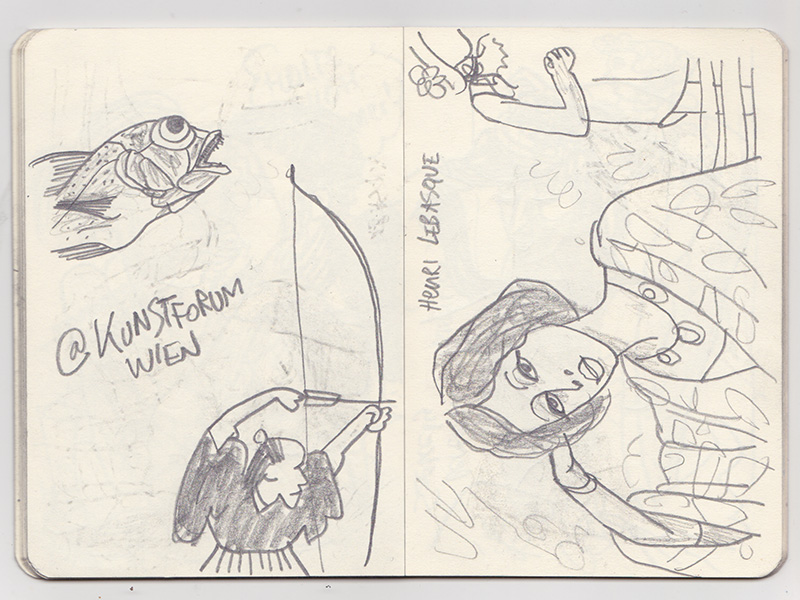 @KUNSTFORUM
WIEN
HENRI LEBASQUE